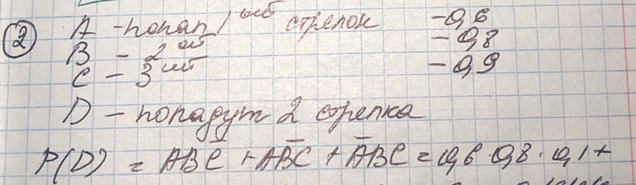 ② A - попал 1ый стрелок - 0,6
B - 2ой - 0,8
C - 3ий - 0,9
D - попадут 2 стрелка
P(D) = ABC̄ + AB̄C + ĀBC = 0,6 · 0,8 · 0,1 +